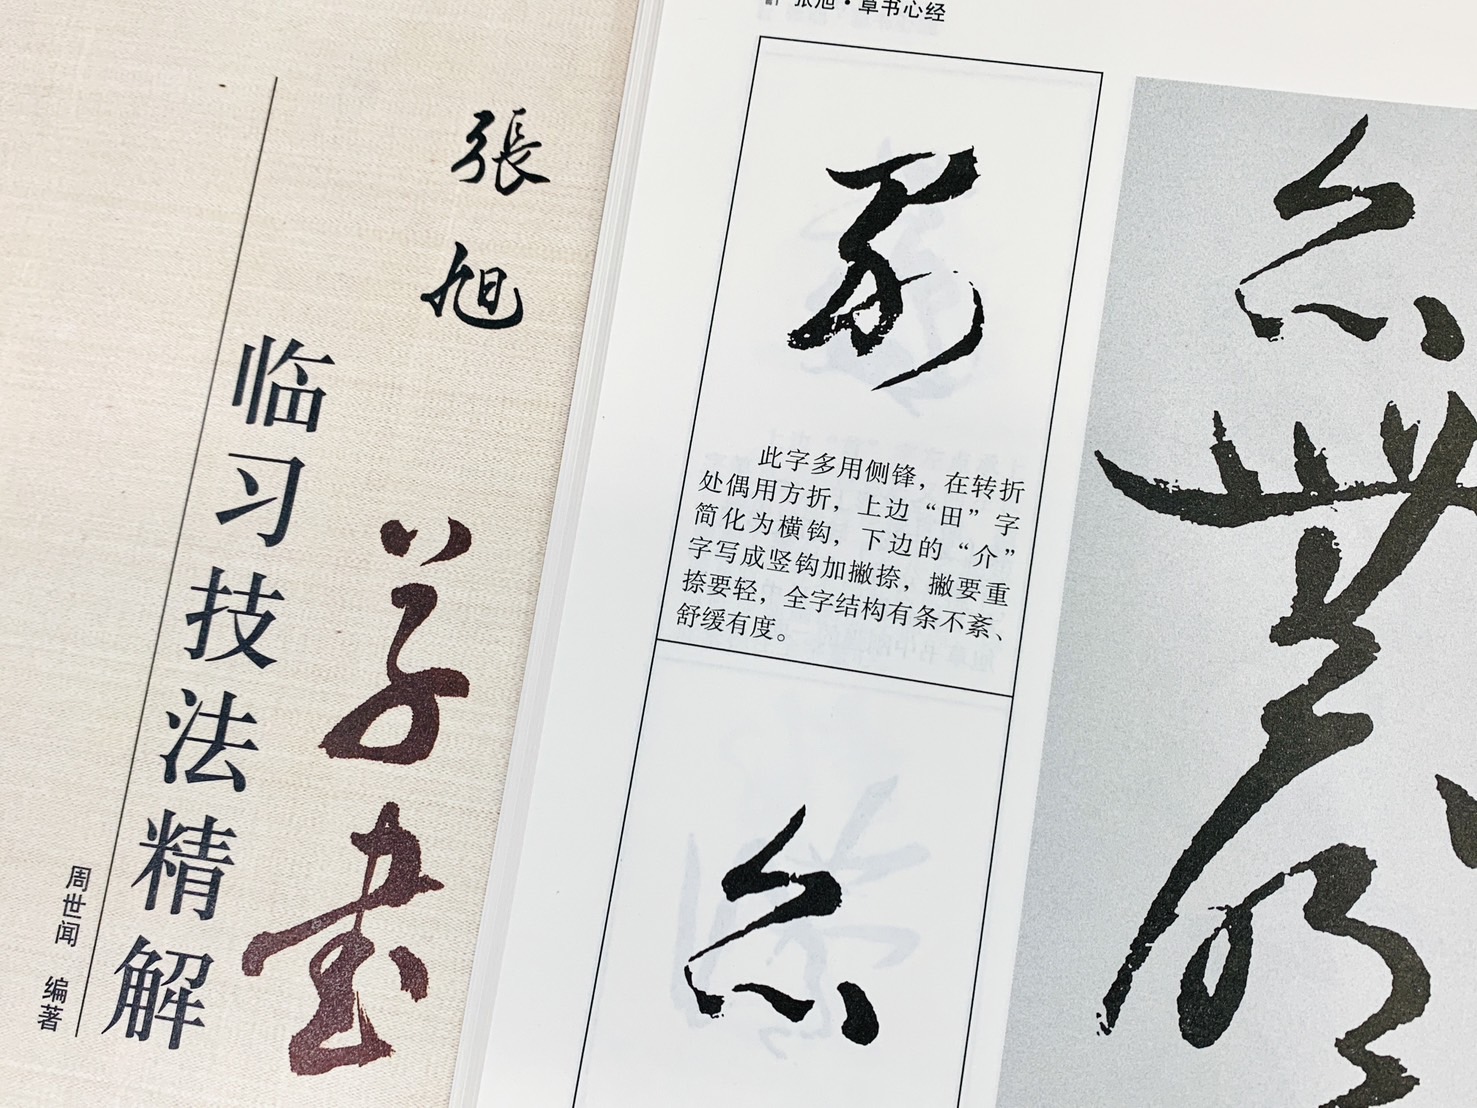 張旭
草书
临习技法精解
周世闻 编著
张旭·草书心经
界
此字多用侧锋，在转折
处偶用方折，上边“田”字
简化为横钩，下边的“介”
字写成竖钩加撇捺，撇要重
捺要轻，全字结构有条不紊、
舒缓有度。
亦
亦
無
明